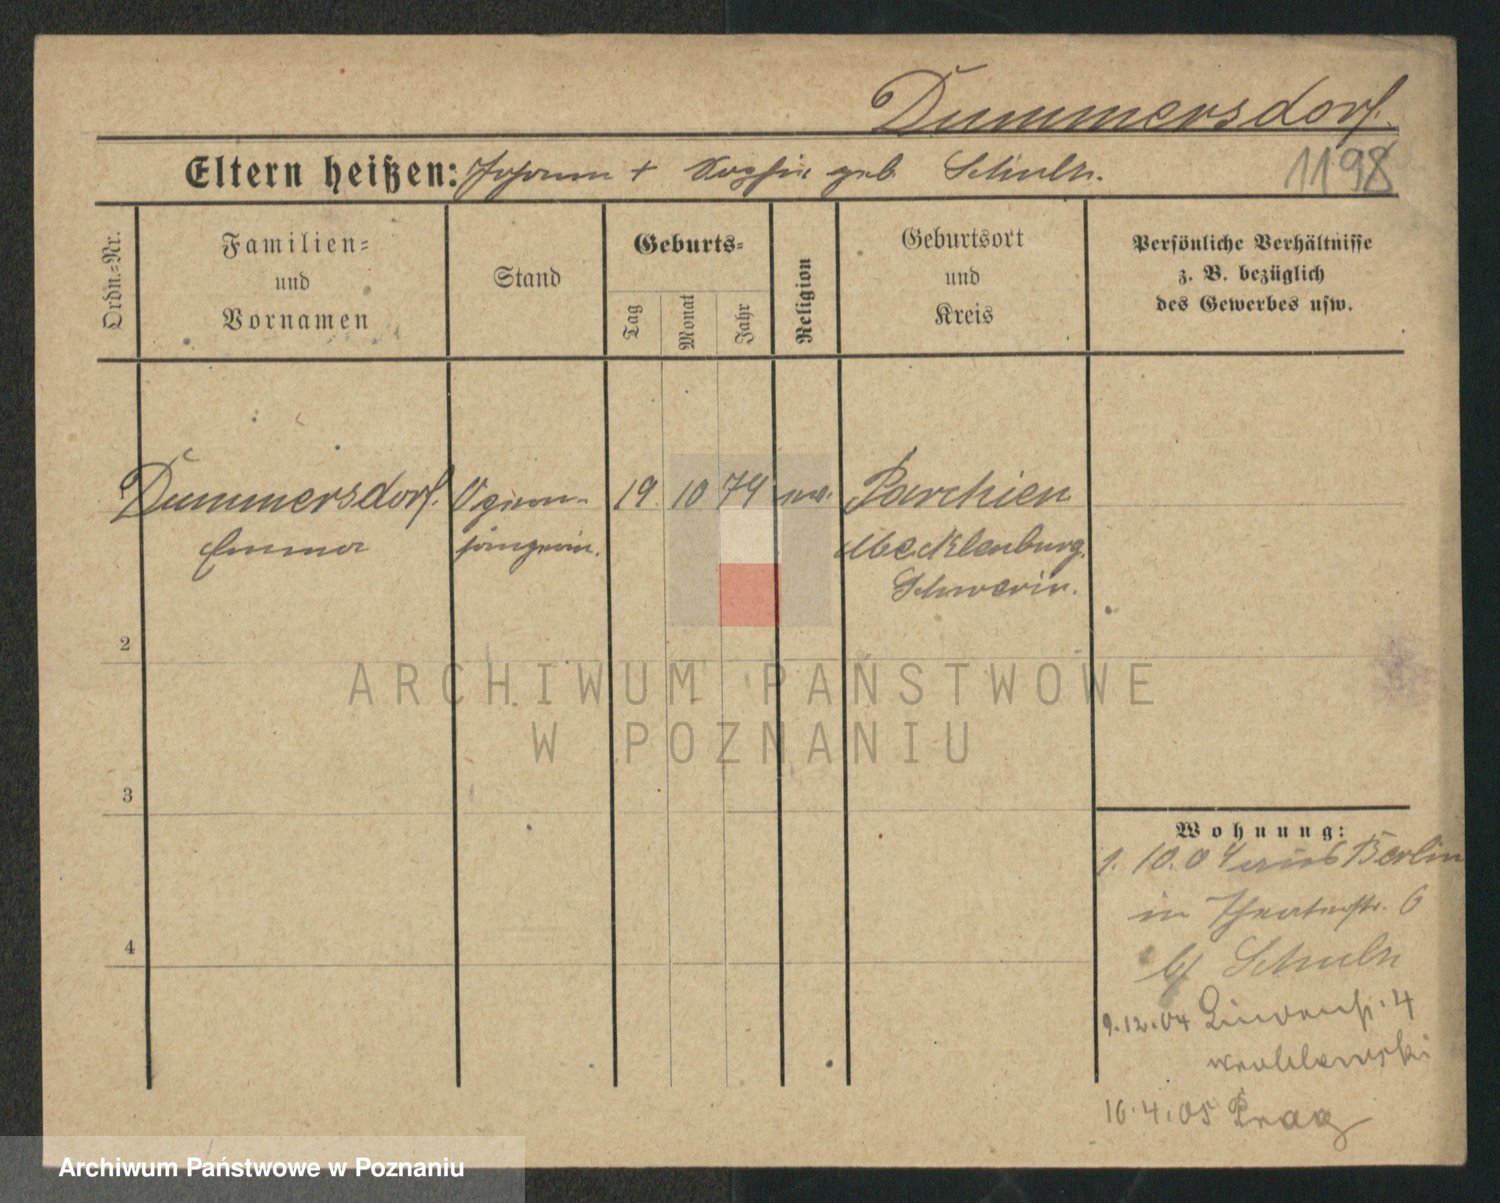 Dummersdorf.
Eltern heißen: Johann + Sophie geb. Schulz.
1198
Ordn.-Nr.
Familien-
und
Vornamen
Stand
Geburts-
Tag
Monat
Jahr
Religion
Geburtsort
und
Kreis
Persönliche Verhältnisse
z. B. bezüglich
des Gewerbes usw.
Dummersdorf. 19. 10 79 Parchien
Emma Mecklenburg.
Schwerin.
2
ARCHIWUM PAŃSTWOWE
W POZNANIU
3
Wohnung:
1. 10. 04 aus Berlin
in Theaterstr. 6
b/ Schulz
4
9.12.04
10.4.05 Prag
Archiwum Państwowe w Poznaniu